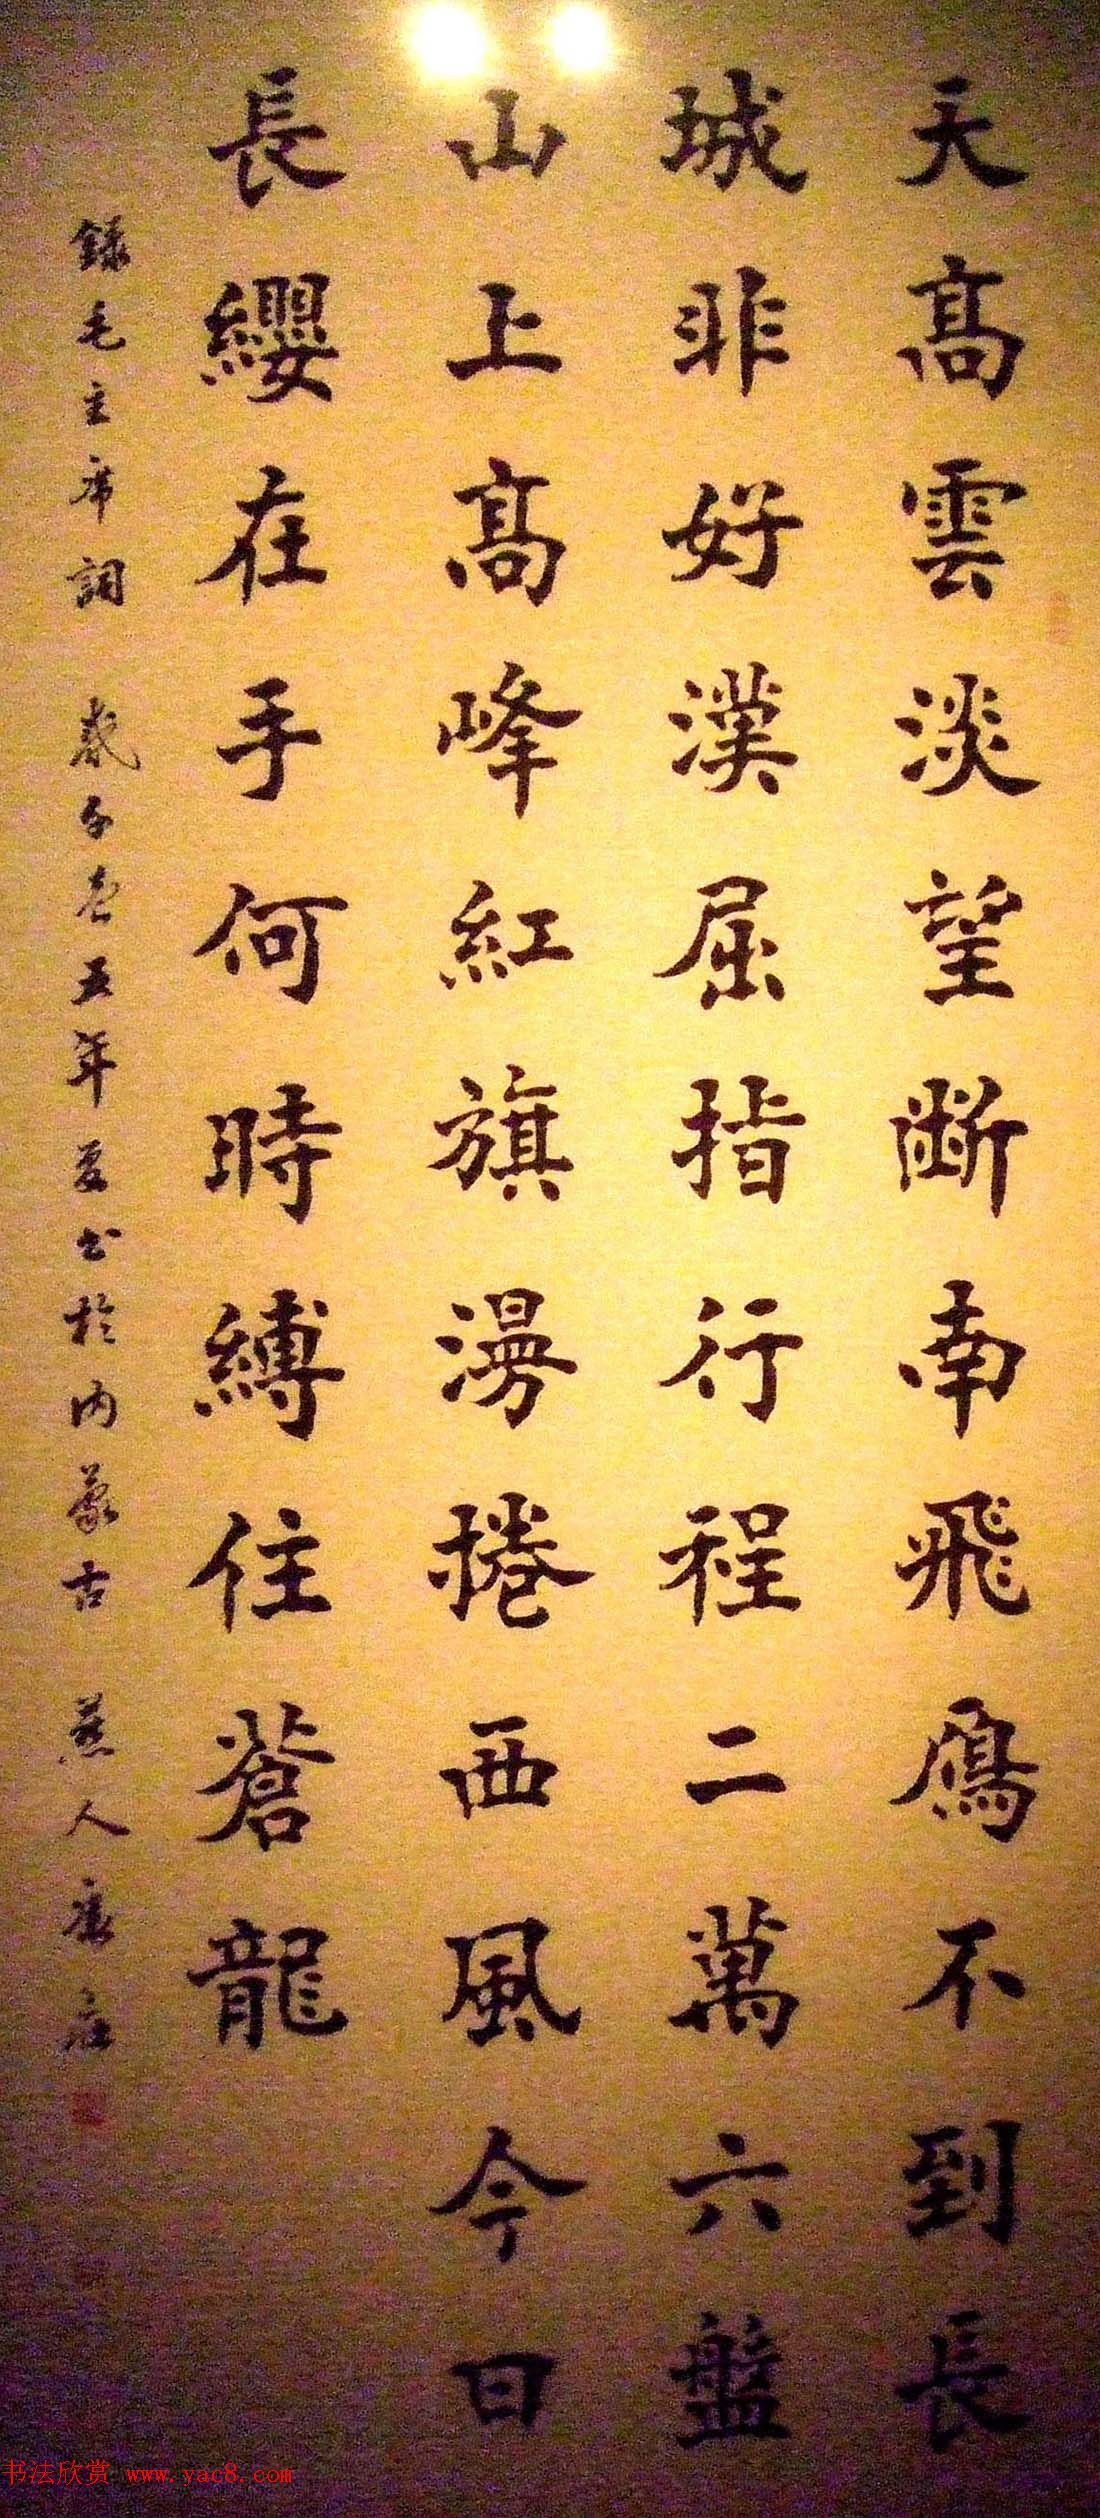 天髙雲淡望斷南飛鴈不到長
城非好漢屈指行程二萬六盤
山上髙峰紅旗漫捲西風今日
長纓在手何時縛住蒼龍
錄毛主席詞 千壹五年夏書於內蒙古 燕人
书法欣赏 www.yac8.com